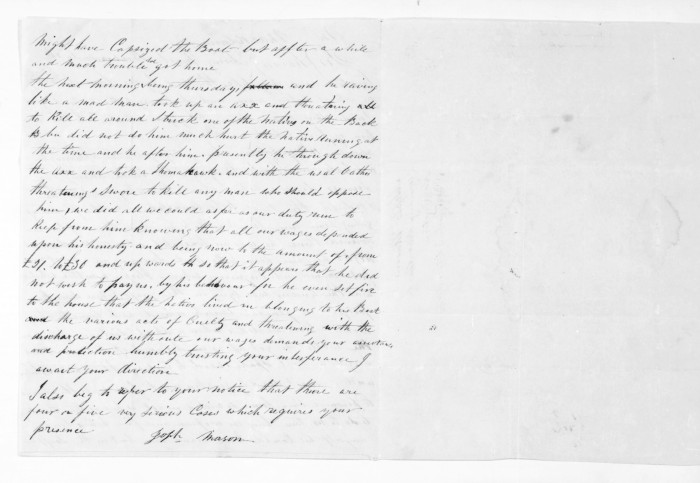 Might have Capsized the Boat but affter a while
and much trouble got home
the next morning being thursday, and he raving
like a mad man took up an axx and threatning
to Kill all around Struck one of the Natives on the Back
but did not do him much hurt the Native running at
the time and he after him, presently he through down
the axx and took a Thmahawk, and with the usal Oathes
threatnings Swore to Kill any man who should oppose
him, we did all we could as far as our duty run to
Keep from him Knowing that all our wages depended
upon his honesty and being now to the amount of from
£21. to £30 and upwards so that it appears that he did
not wish to pay us, by his behavour for he even set fire
to the house that the Natives lived in belonging to his Boat
and the various acts of Cruelty and threatening with the
discharge of us without our wages demands your assistance
and protection humbly trusting your interferance I
await your direction
I also beg to refer to your notice that there are
four or five very serious Cases which requires your
presence
Josh Mason